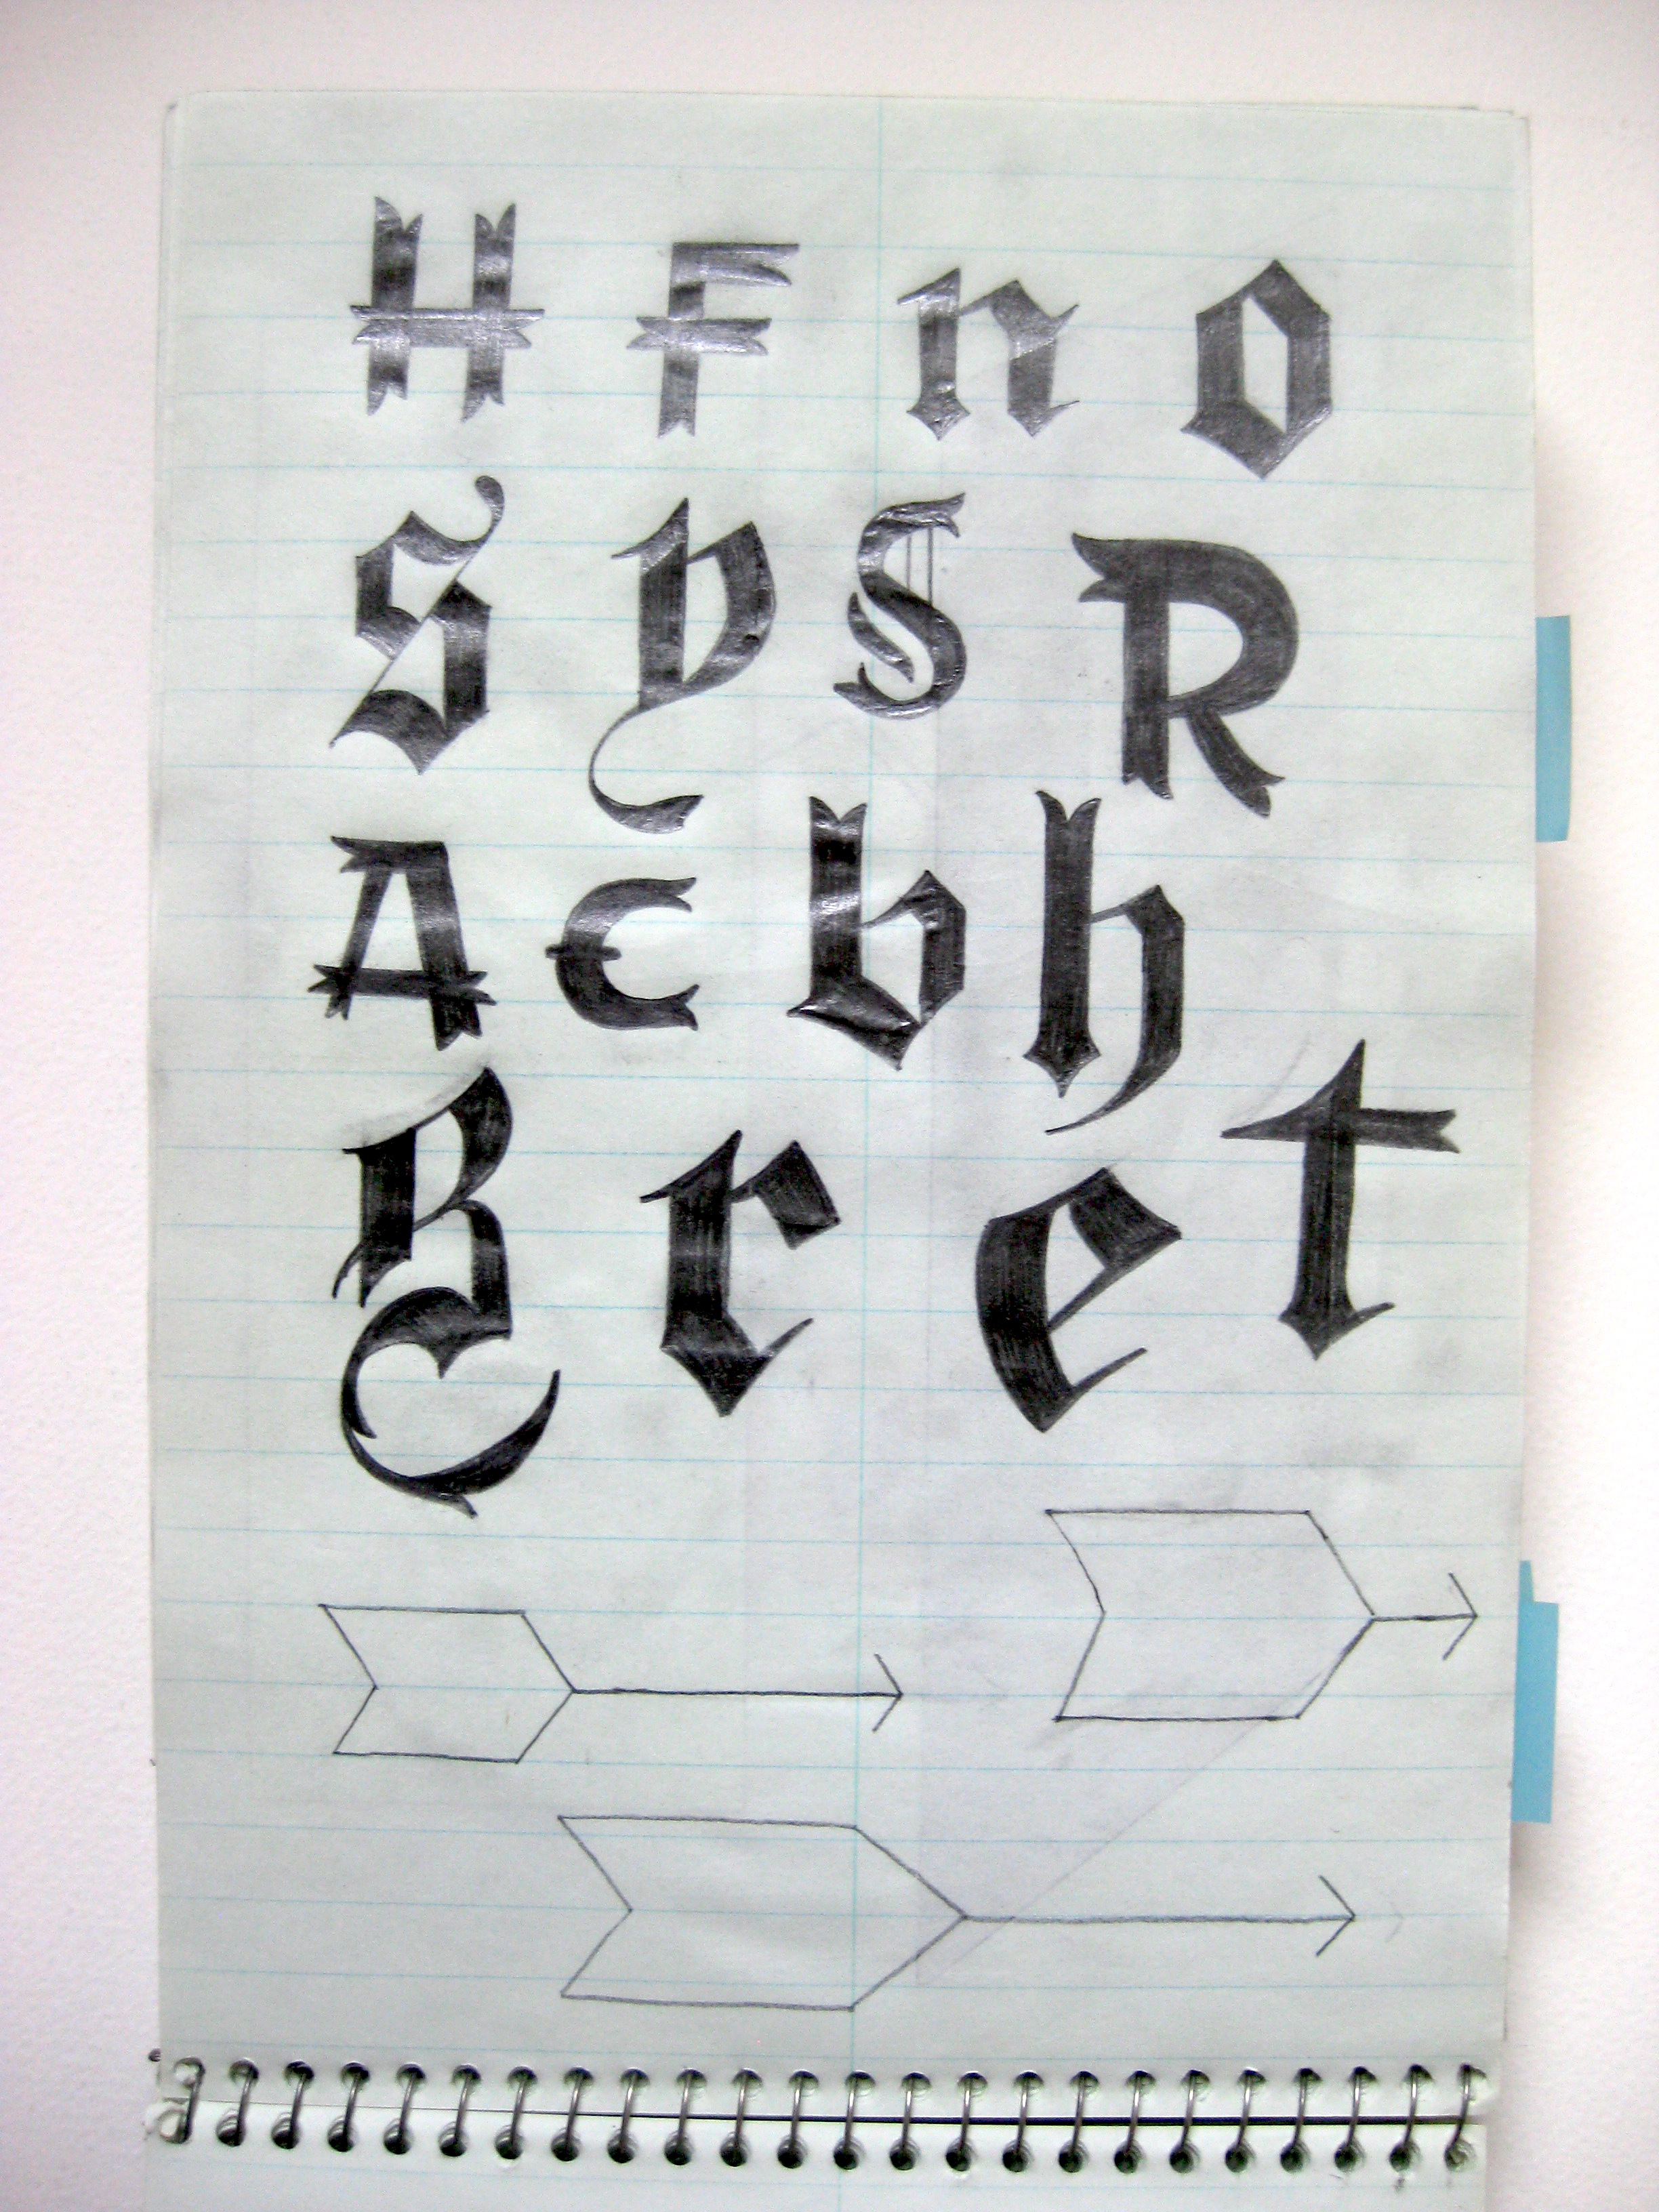 H F n o
S y S R
A C b h
B r e t